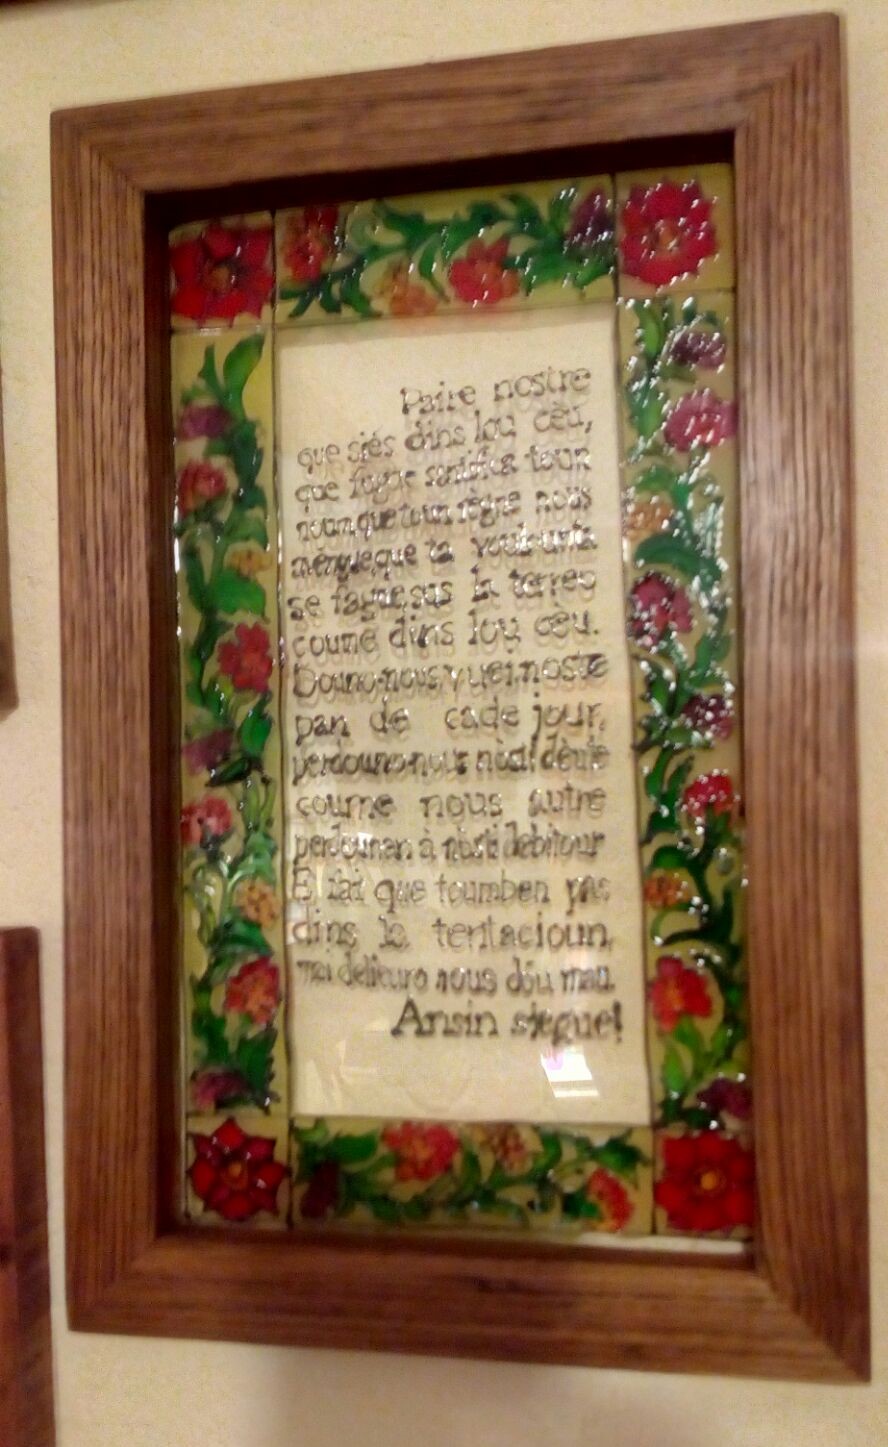 Paire nostre
que siés dins lou cèu,
que fugue santifica toun
noum, que toun règne nous
avèngue, que ta voulounta
se fague, sus la terro
coume dins lou cèu.
Douno-nous vuei noste
pan de cade jour,
perdouno-nous nòsti dèute
coume nous autre
perdounan à nòsti debitour
E fai que toumben pas
dins la tentacioun,
mai delieuro nous dóu mau.
Ansin siegue!